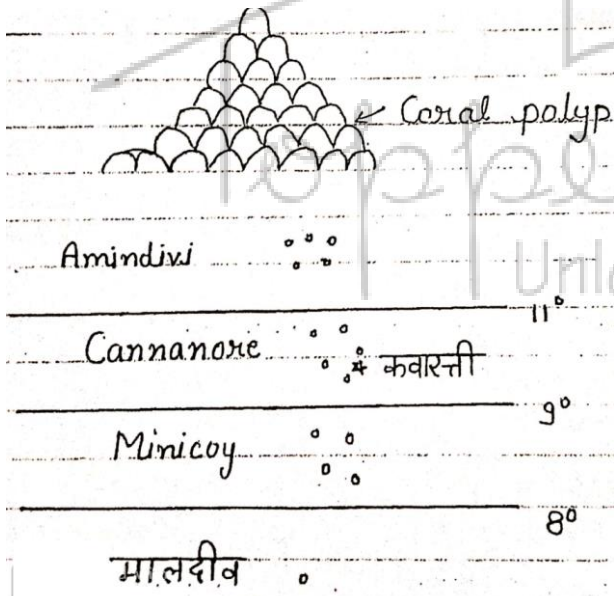 Coral polyp
Amindivi
11°
Cannanore
कवारत्ती
9°
Minicoy
8°
मालदीव